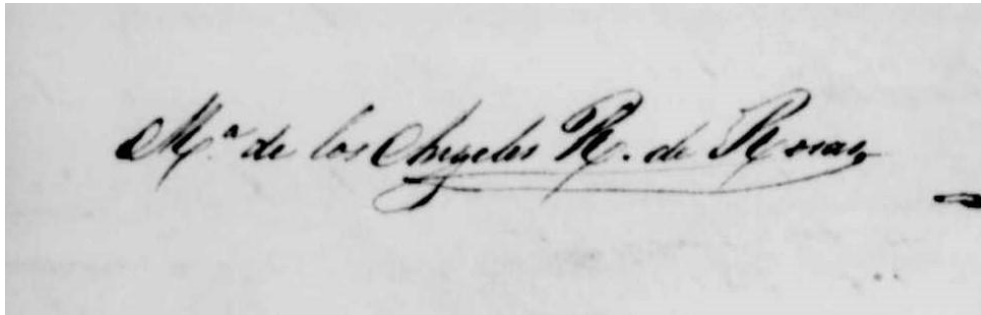 Mª de los Angeles R. de Rosas